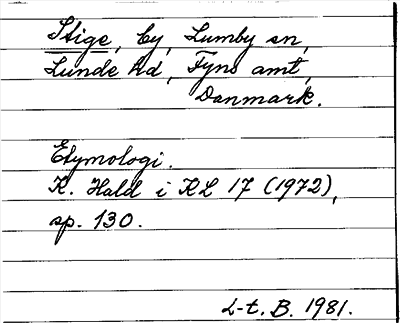 Stige, by, Lumby sn,
Lunde hd, Fyns amt,
Danmark.
Etymologi.
K. Hald i KL 17 (1972),
sp. 130.
L-t. B. 1981.